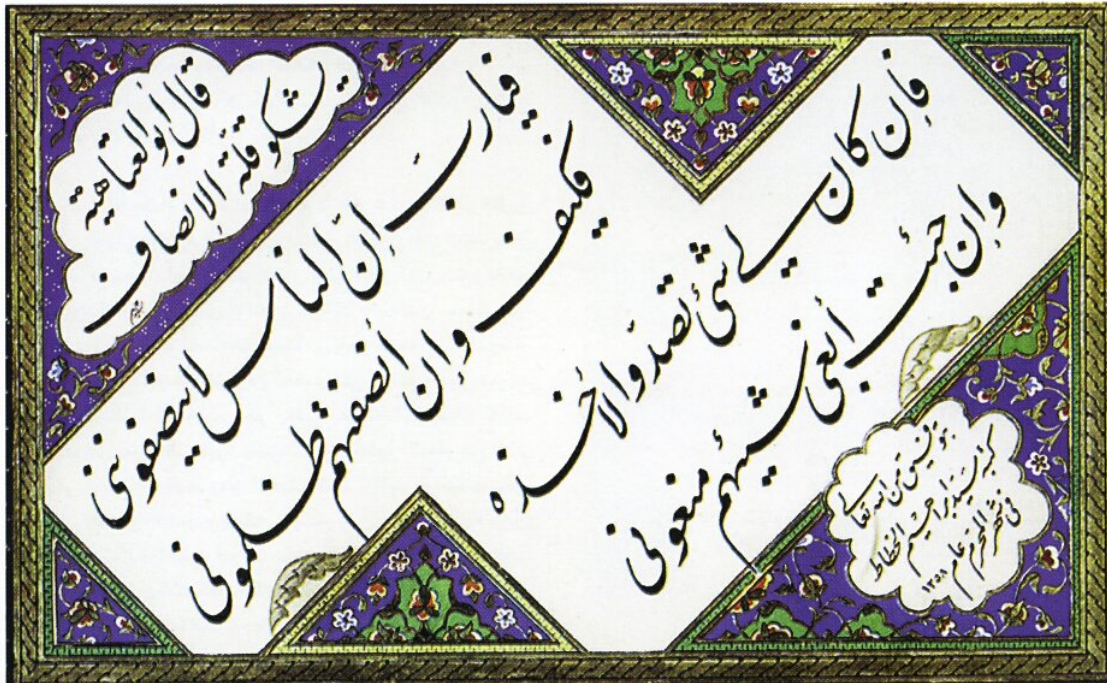 قال أبو العتاهية
يشكو قلة الإنصاف
فيارب إن الناس لا ينصفونني
فكيف وإن أنصفتهم ظلموني
فإن كان لي شئ تصدوا لأخذه
وإن جئت أبغي شيئهم منعوني
بتوفيق من الله تعالى
كتبه سيد ابراهيم الخطاط
في شهر المحرم عام ١٣٥٨